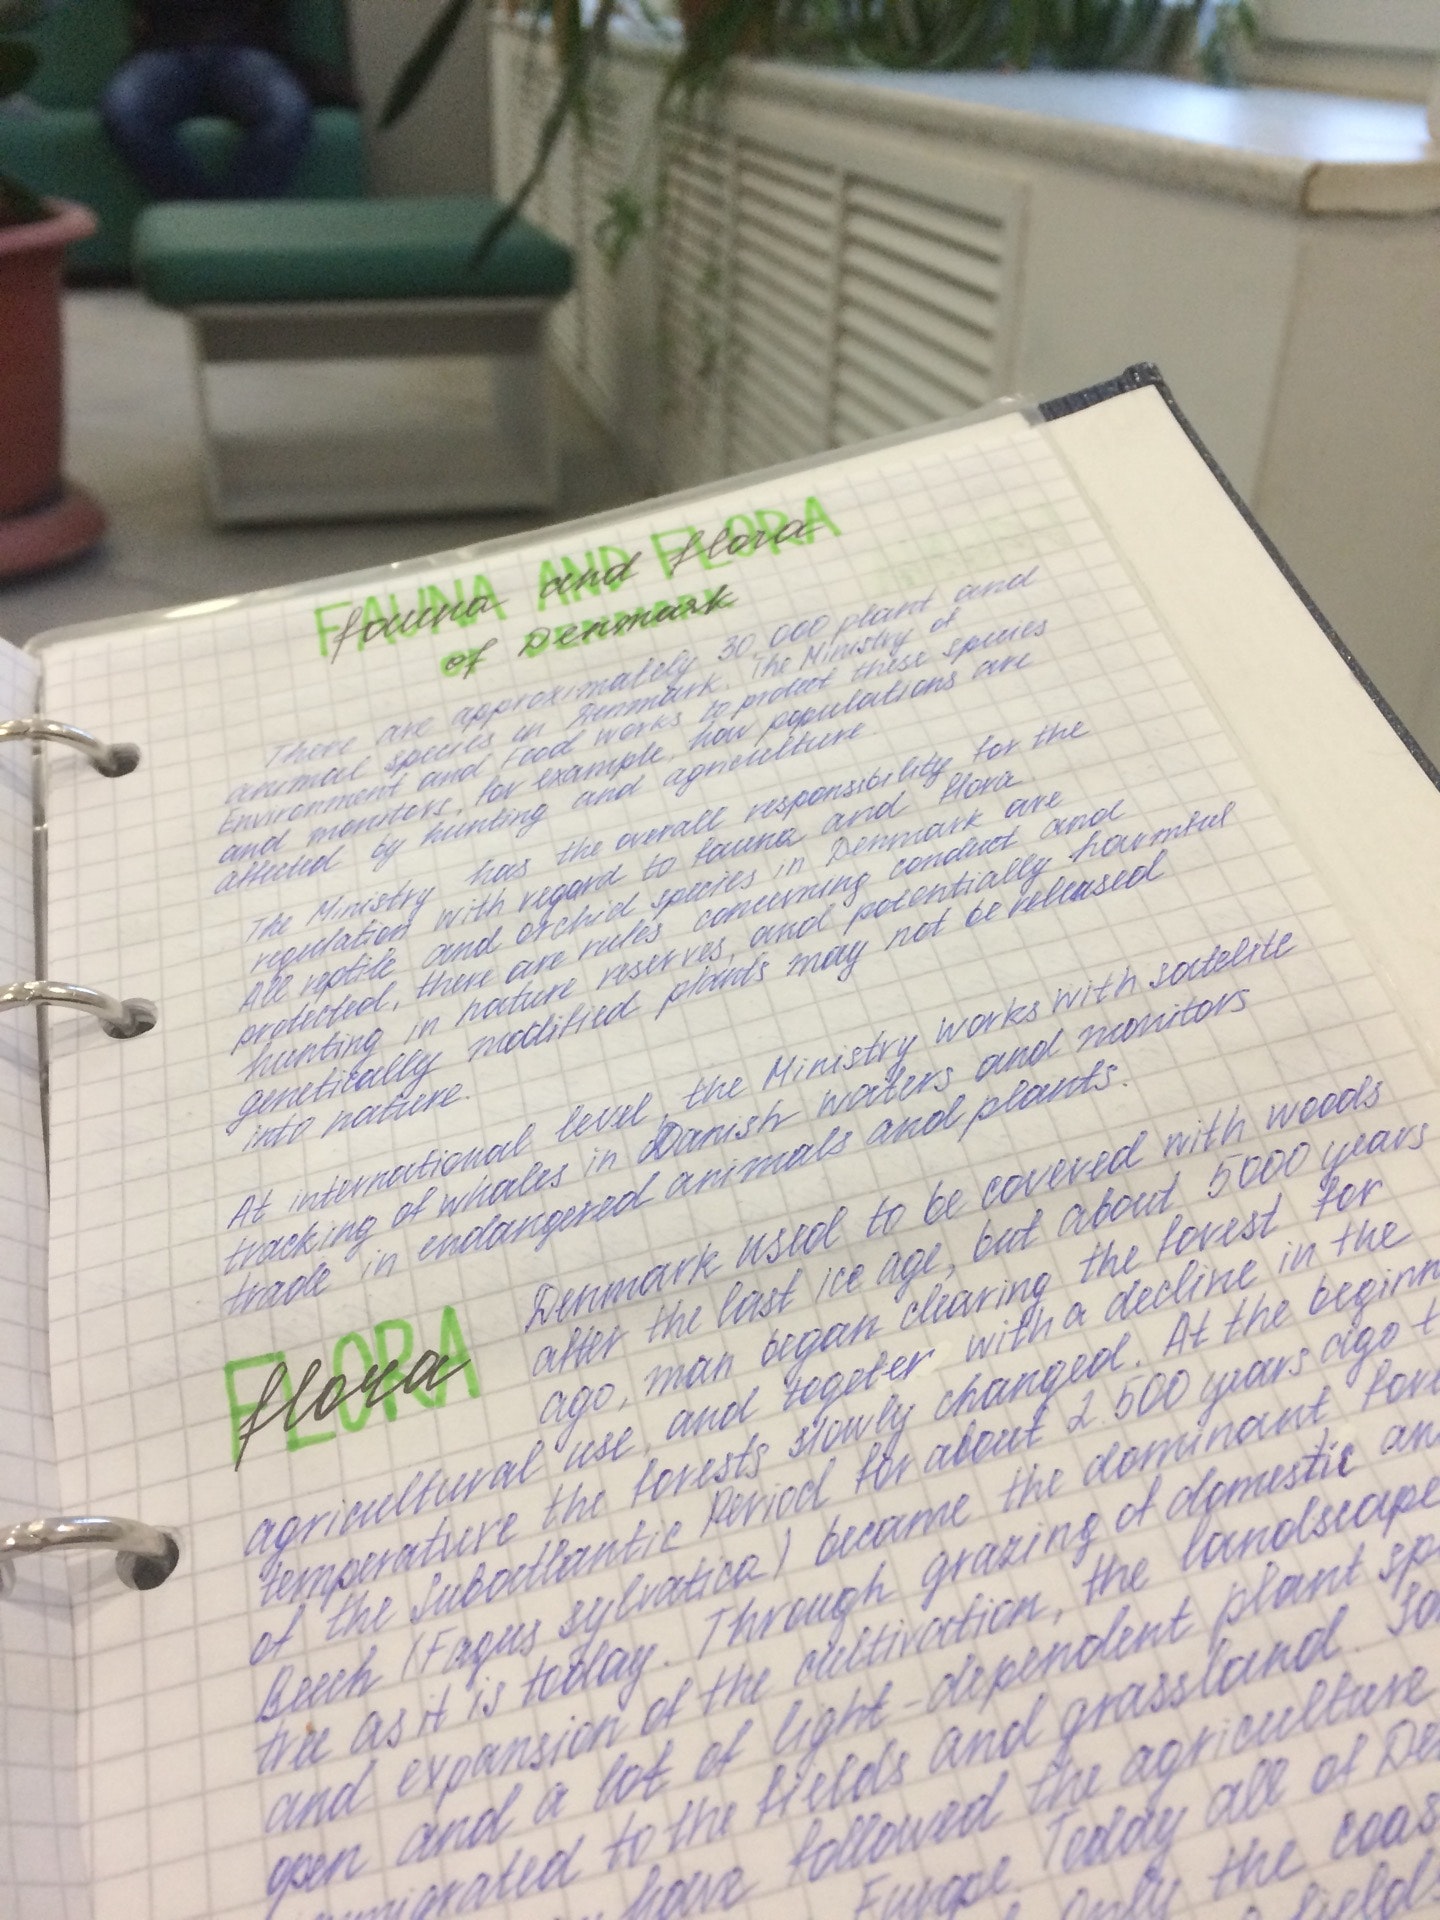 FAUNA AND FLORA
fauna and flora
of DENMARK
of Denmark
There are approximately 30 000 plant and
animal species in Denmark. The Ministry of
Environment and Food works to protect these species
and monitors, for example, how populations are
affected by hunting and agriculture.
The Ministry has the overall responsibility for the
regulation with regard to fauna and flora
All reptile and orchid species in Denmark are
protected, there are rules concerning conduct and
hunting in nature reserves, and potentially harmful
genetically modified plants may not be released
into nature.
At international level, the Ministry works with satelite
tracking of whales in Danish waters and monitors
trade in endangered animals and plants.
FLORA
flora
Denmark used to be covered with woods
after the last ice age, but about 5000 years
ago, man began clearing the forest for
agricultural use, and togeter with a decline in the
temperature the forests slowly changed. At the beginn
of the Subatlantic Period for about 2.500 years ago t
Beech (Fagus sylvatica) became the dominant fore
tree as it is today. Through grazing of domestic an
and expansion of the cultivation, the landscape
open and a lot of light-dependent plant spe
immigrated to the fields and grassland. So
have followed the agriculture
Europe. Today all of De
Only the coas
fields